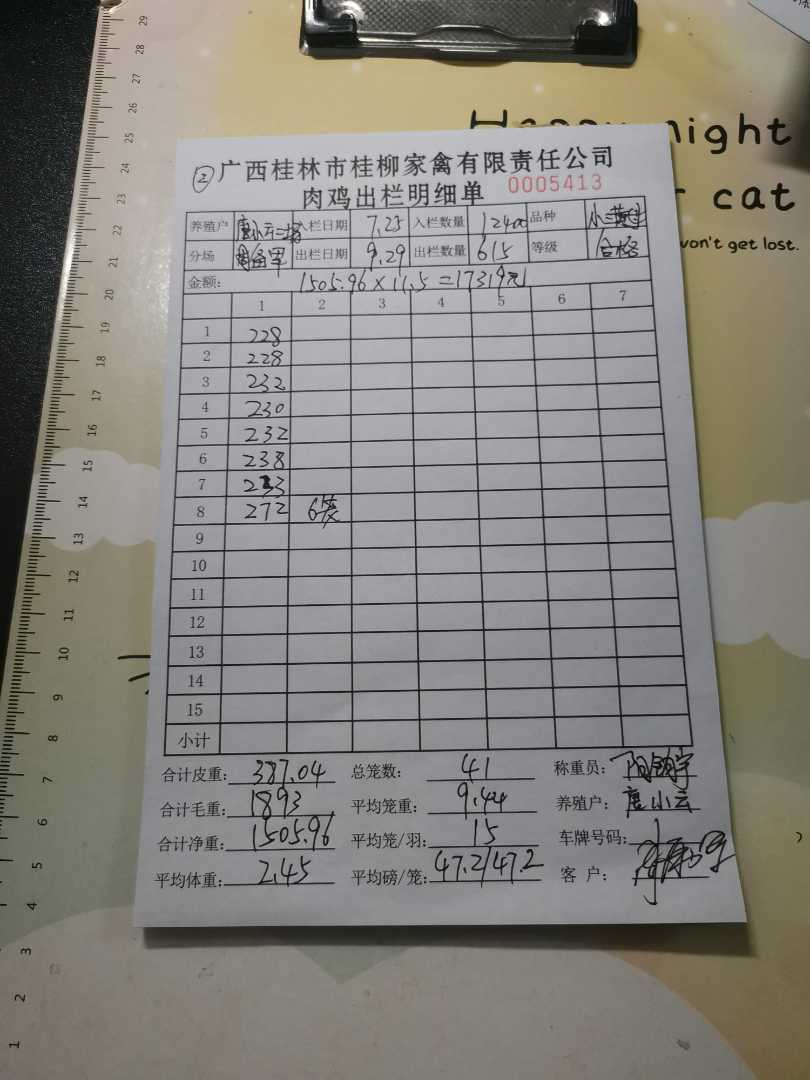 Happy night
cat
won't get lost.
② 广西桂林市桂柳家禽有限责任公司
肉鸡出栏明细单 0005413
养殖户 唐小云二场 入栏日期 7.25 入栏数量 12400 品种
分场 出栏日期 9.29 出栏数量 615 等级 合格
金额: 1505.96×11.5=17319元
1 2 3 4 5 6 7
1 228
2 228
3 232
4 230
5 232
6 238
7 233
8 272 6笼
9
10
11
12
13
14
15
小计
合计皮重: 387.04 总笼数: 41 称重员:
合计毛重: 1893 平均笼重: 9.44 养殖户: 唐小云
合计净重: 1505.96 平均笼/羽: 15 车牌号码:
平均体重: 2.45 平均磅/笼: 47.2/47.2 客 户:
29
28
27
26
25
24
23
22
21
20
19
18
17
16
15
14
13
12
11
10
9
8
7
6
5
4
3
2
1